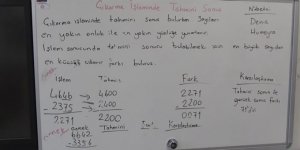 Çıkarma İşleminde Tahmini Sonuç
Nöbetçi
Çıkarma işleminde tahmini sonuç bulurken sayıları
Deniz
en yakın onluk ile en yakın yüzlüğe yuvarlarız.
Hümeyra
İşlem sonucunda tahmini sonucu bulabilmek için en büyük sayıdan
en küçüğü çıkarır farkı buluruz.
İşlem Tahmin Fark Karşılaştırma
4646 → 4600 2271 Tahmin sonuç ile
2375 → 2400 2200 gerçek sonuç farkı
2271 2200 0071 71'dir.
Örnek Tahmini Karşılaştırma
6642
3396